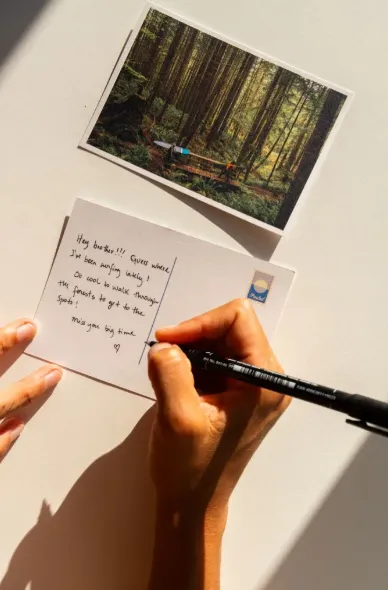 Hey brother!!! Guess where
I've been surfing lately!
So cool to walk through
the forests to get to the
spots!
Miss you big time
♡